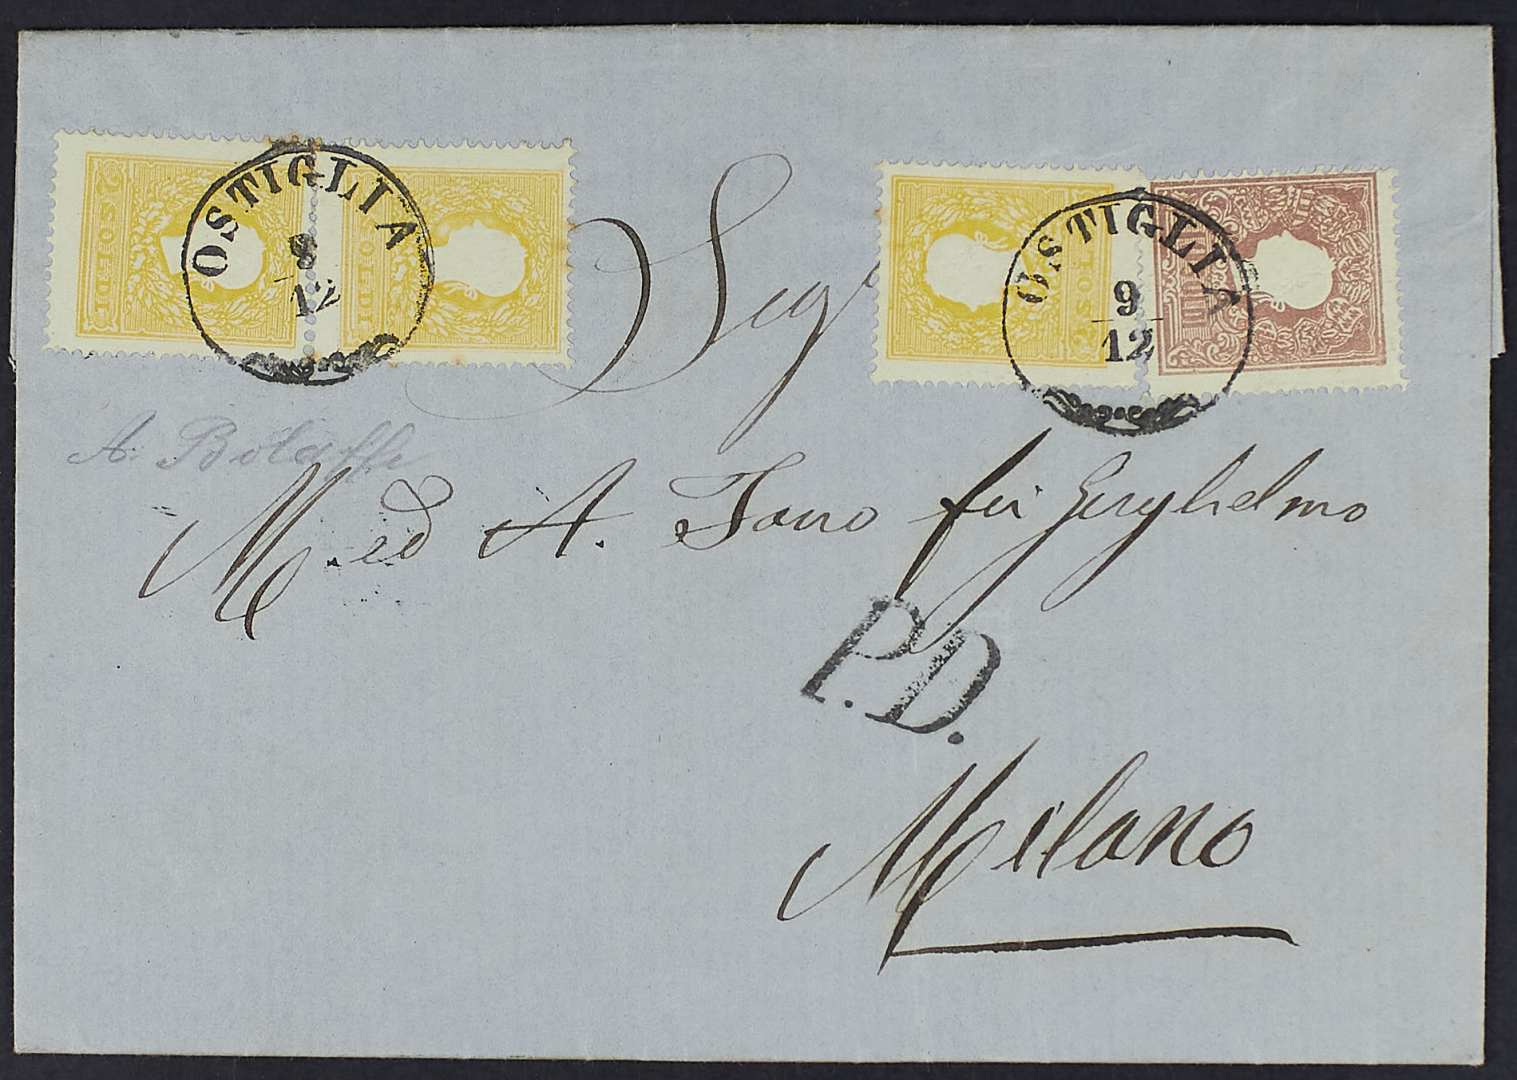 2 SOLDI
SOLDI
2 SOLDI
10
OSTIGLIA
8
12
OSTIGLIA
9
12
Sigr
A. Bolaffi
M. ed A. Fano fu Guglielmo
P.D.
Milano